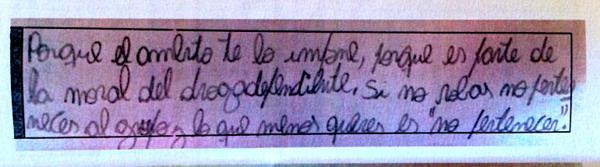 Porque el ambito te lo impone, porque es parte de
la moral del drogadependiente. Si no robas no perte
neces al grupo y lo que menos queres es "no pertenecer."